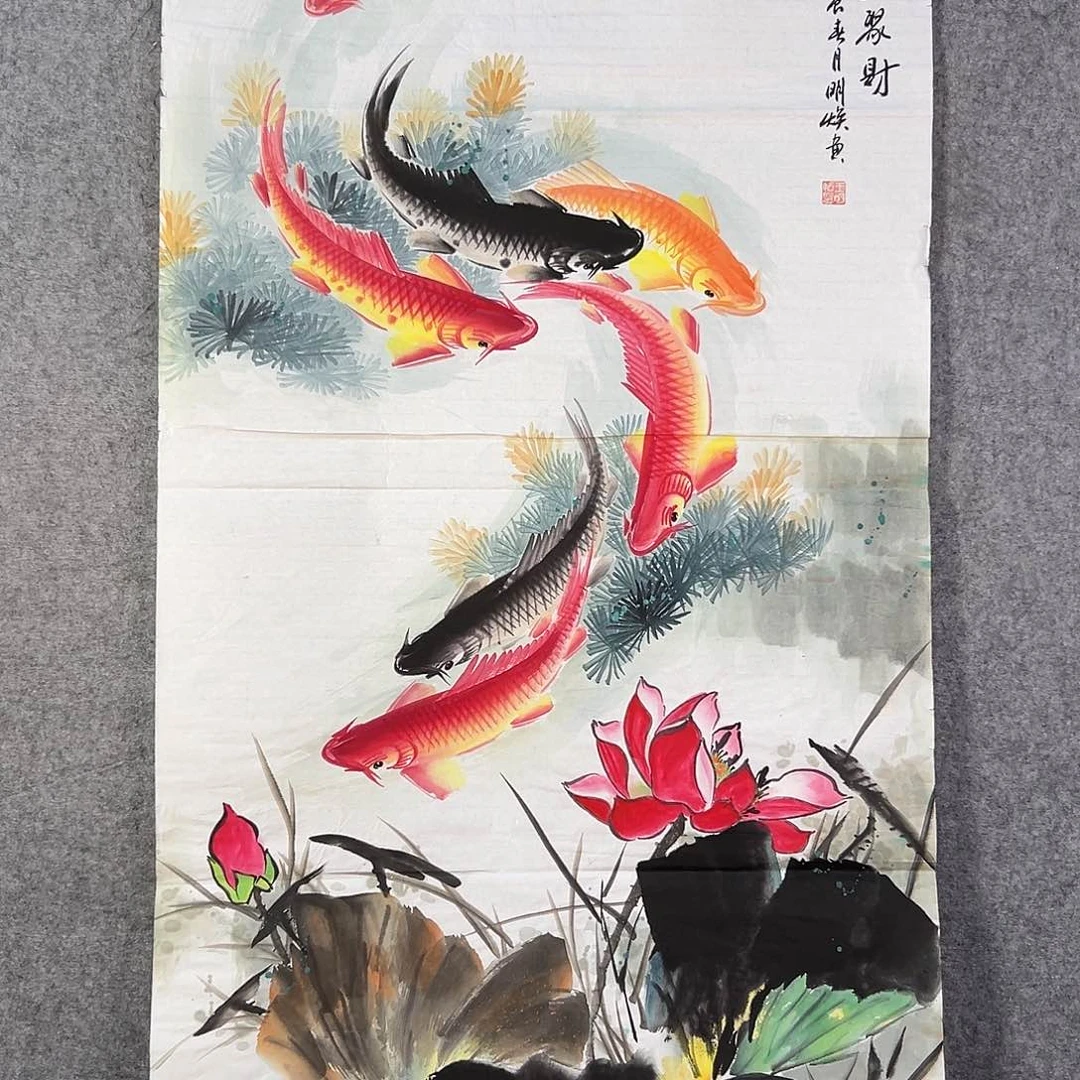 聚财
春月明焕画